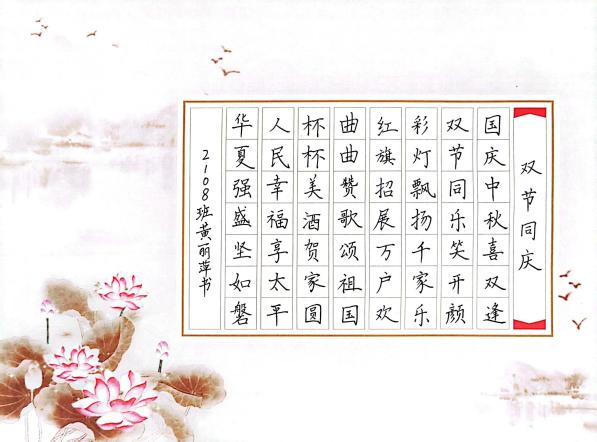 双节同庆
国庆中秋喜双逢
双节同乐笑开颜
彩灯飘扬千家乐
红旗招展万户欢
曲曲赞歌颂祖国
杯杯美酒贺家圆
人民幸福享太平
华夏强盛坚如磐
2108班黄丽萍书